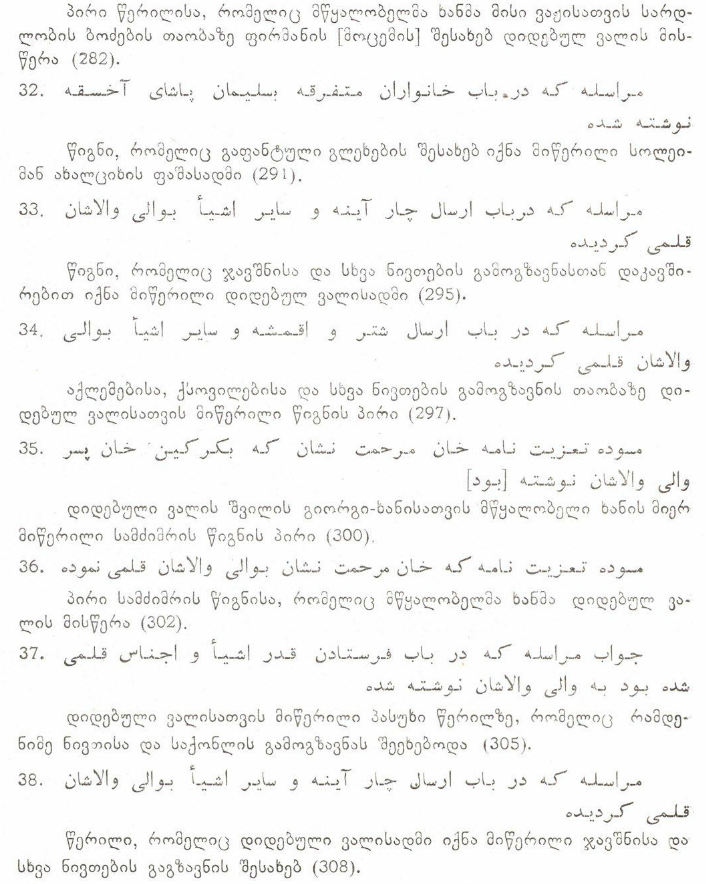 პირი წერილისა, რომელიც მწყალობელმა ხანმა მისი ვაჟისათვის სარდ-
ლობის ბოძების თაობაზე ფირმანის [მოცემის] შესახებ დიდებულ ვალის მის-
წერა (282).
32. مراسله که در باب خانواران متفرقه بسلیمان پاشای آخسقه
نوشته شده
წიგნი, რომელიც გაფანტული გლეხების შესახებ იქნა მიწერილი სოლეი-
მან ახალციხის ფაშასადმი (291).
33. مراسله که درباب ارسال چار آینه و سایر اشیأ بوالی والاشان
قلمی کردیده
წიგნი, რომელიც ჯავშნისა და სხვა ნივთების გამოგზავნასთან დაკავში-
რებით იქნა მიწერილი დიდებულ ვალისადმი (295).
34. مراسله که در باب ارسال شتر و اقمشه و سایر اشیأ بوالی
والاشان قلمی کردیده
აქლემებისა, ქსოვილებისა და სხვა ნივთების გამოგზავნის თაობაზე დი-
დებულ ვალისათვის მიწერილი წიგნის პირი (297).
35. مسوده تعزیت نامه خان مرحمت نشان که بکرکین خان پسر
والی والاشان نوشته [بود]
დიდებული ვალის შვილის გიორგი-ხანისათვის მწყალობელი ხანის მიერ
მიწერილი სამძიმრის წიგნის პირი (300).
36. مسوده تعزیت نامه که خان مرحمت نشان بوالی والاشان قلمی نموده
პირი სამძიმრის წიგნისა, რომელიც მწყალობელმა ხანმა დიდებულ ვა-
ლის მისწერა (302).
37. جواب مراسله که در باب فرستادن قدر اشیأ و اجناس قلمی
شده بود به والی والاشان نوشته شده
დიდებული ვალისათვის მიწერილი პასუხი წერილზე, რომელიც რამდე-
ნიმე ნივთისა და საქონლის გამოგზავნას შეეხებოდა (305).
38. مراسله که در باب ارسال چار آینه و سایر اشیأ بوالی والاشان
قلمی کردیده
წერილი, რომელიც დიდებული ვალისადმი იქნა მიწერილი ჯავშნისა და
სხვა ნივთების გაგზავნის შესახებ (308).